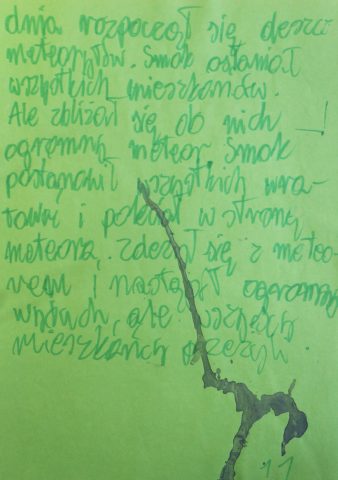 dnia rozpoczął się deszcz
meteorytów. Smok osłaniał
wszystkich mieszkańców.
Ale zbliżał się do nich
ogromny meteor. Smok
postanowił wszystkich ura-
tować i poleciał w stronę
meteora, zderzył się z meteo-
rem i nastąpił ogromny
wybuch, ale wszyscy
mieszkańcy przeżyli.
11